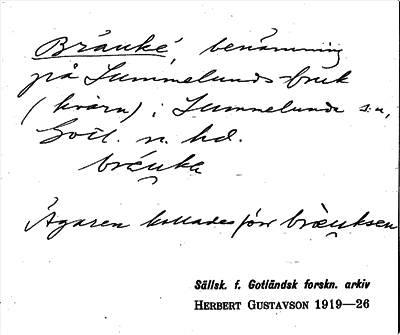 Bräuké, benämning
på Lummelunds-bruk
(kvarn) i Lummelunda sn,
Gotl. n. hd.
bräuka
Ägaren kallades förr bræuksen
Sällsk. f. Gotländsk forskn. arkiv
HERBERT GUSTAVSON 1919—26